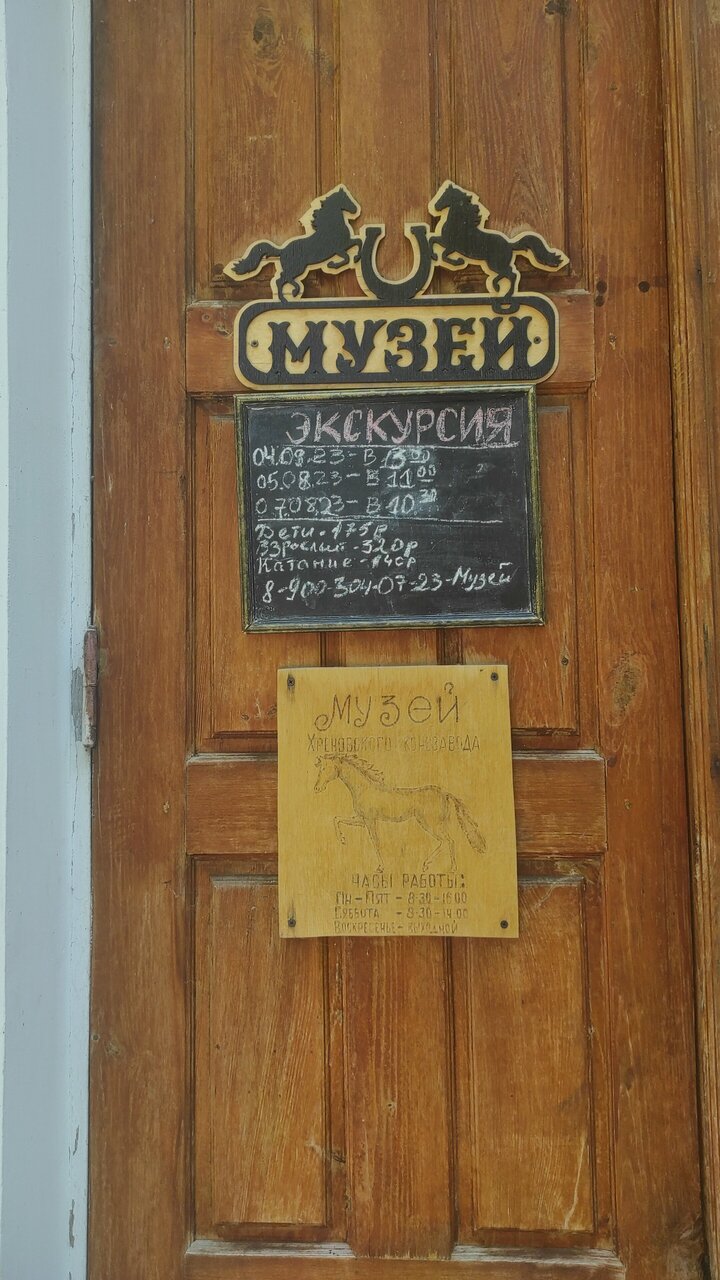 МУЗЕЙ
ЭКСКУРСИЯ
04.08.23-В 13 00
05.08.23-В 11 00
07.08.23-В 10 30
Дети-175р
Взрослый-320р
Катание-140р
8-900-304-07-23-Музей
МУЗЕЙ
ХРЕНОВСКОГО КОНЕЗАВОДА
ЧАСЫ РАБОТЫ:
ПН-ПЯТ - 8-30-16 00
СУББОТА - 8-30-14 00
ВОСКРЕСЕНЬЕ-ВЫХОДНОЙ